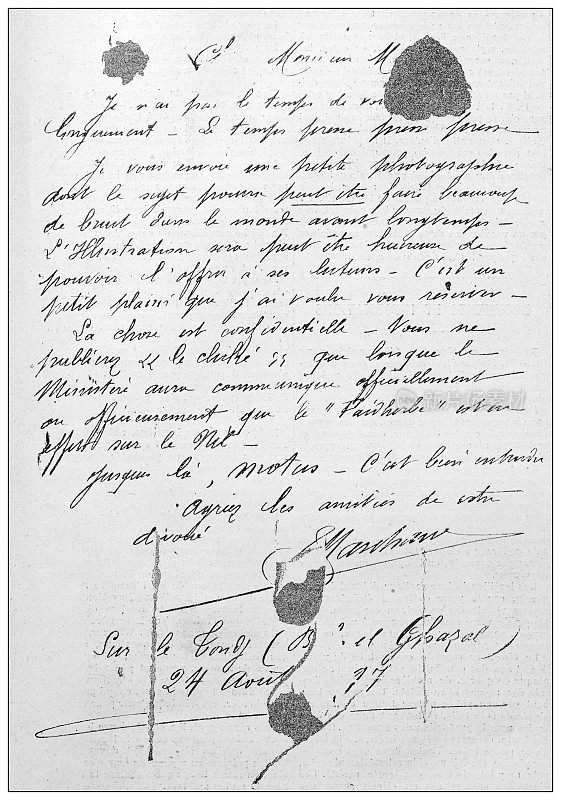 Cl Monsieur M
Je n'ai pas le temps de vou
longuement - Le temps presse presse presse
Je vous envoie une petite photographie
dont le sujet pourra peut être faire beaucoup
de bruit dans le monde avant longtemps -
L'Illustration sera peut être heureuse de
pouvoir l'offrir à ses lecteurs - C'est un
petit plaisir que j'ai voulu vous réserver -
La chose est confidentielle - Vous ne
publierez « le cliché » que lorsque le
Ministère aura communiqué officiellement
ou officieusement que le "Faidherbe" est en
effet sur le Nil -
Jusque là, motus - C'est bien entendu
Agréez les amitiés de votre
dévoué
Marchand
Sur le Soueh (B. el Ghazal)
24 Août 97